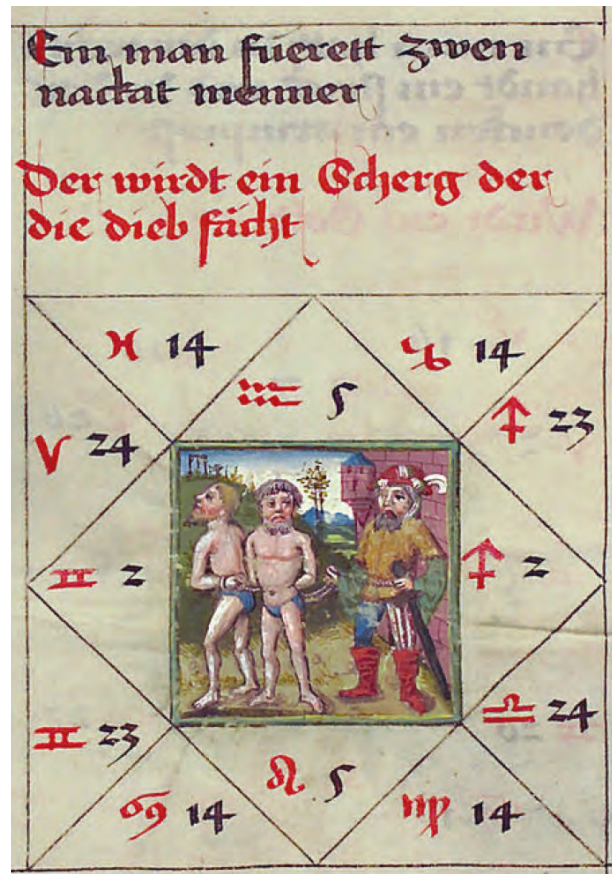 Ein man fuerett zwen
nackat menner
Der wirdt ein Scherg der
die dieb fächt
♓ 14
♑ 14
♒ 5
♐ 23
♈ 24
♊ 2
♐ 2
♎ 24
♊ 23
♌ 5
♋ 14
♍ 14